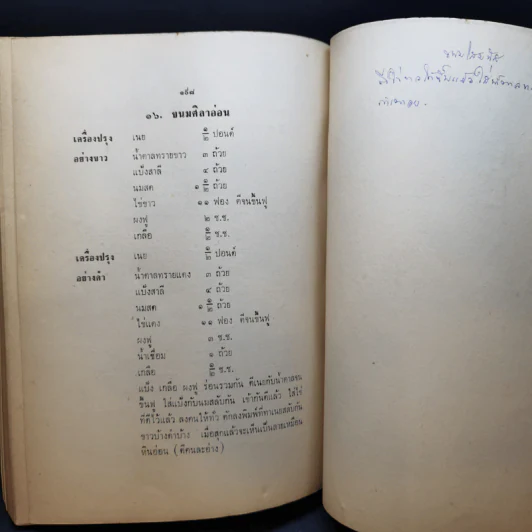 ๑๙๘
๑๖. ขนมศิลาอ่อน
เครื่องปรุง เนย ปอนด์
อย่างขาว น้ำตาลทรายขาว ๓ ถ้วย
แป้งสาลี ๔ ถ้วย
นมสด ๑ ถ้วย
ไข่ขาว ๑๑ ฟอง ตีจนขึ้นฟู
ผงฟู ๒ ช.ช.
เกลือ ช.ช.
เครื่องปรุง เนย ปอนด์
อย่างดำ น้ำตาลทรายแดง ๓ ถ้วย
แป้งสาลี ๔ ถ้วย
นมสด ๑ ถ้วย
ไข่แดง ๑๑ ฟอง ตีจนขึ้นฟู
ผงฟู ๓ ช.ช.
น้ำเชื่อม ๑ ถ้วย
เกลือ ช.ช.
แป้ง เกลือ ผงฟู ร่อนรวมกัน ตีเนยกับน้ำตาลจน
ขึ้นฟู ใส่แป้งกับนมสลับกัน เข้ากันดีแล้ว ใส่ไข่
ที่ตีไว้แล้ว ลงคนให้ทั่ว ตักลงพิมพ์ที่ทาเนยสลับกัน
ขาวบ้างดำบ้าง เมื่อสุกแล้วจะเห็นเป็นลายเหมือน
หินอ่อน (ตีคนละอ่าง)